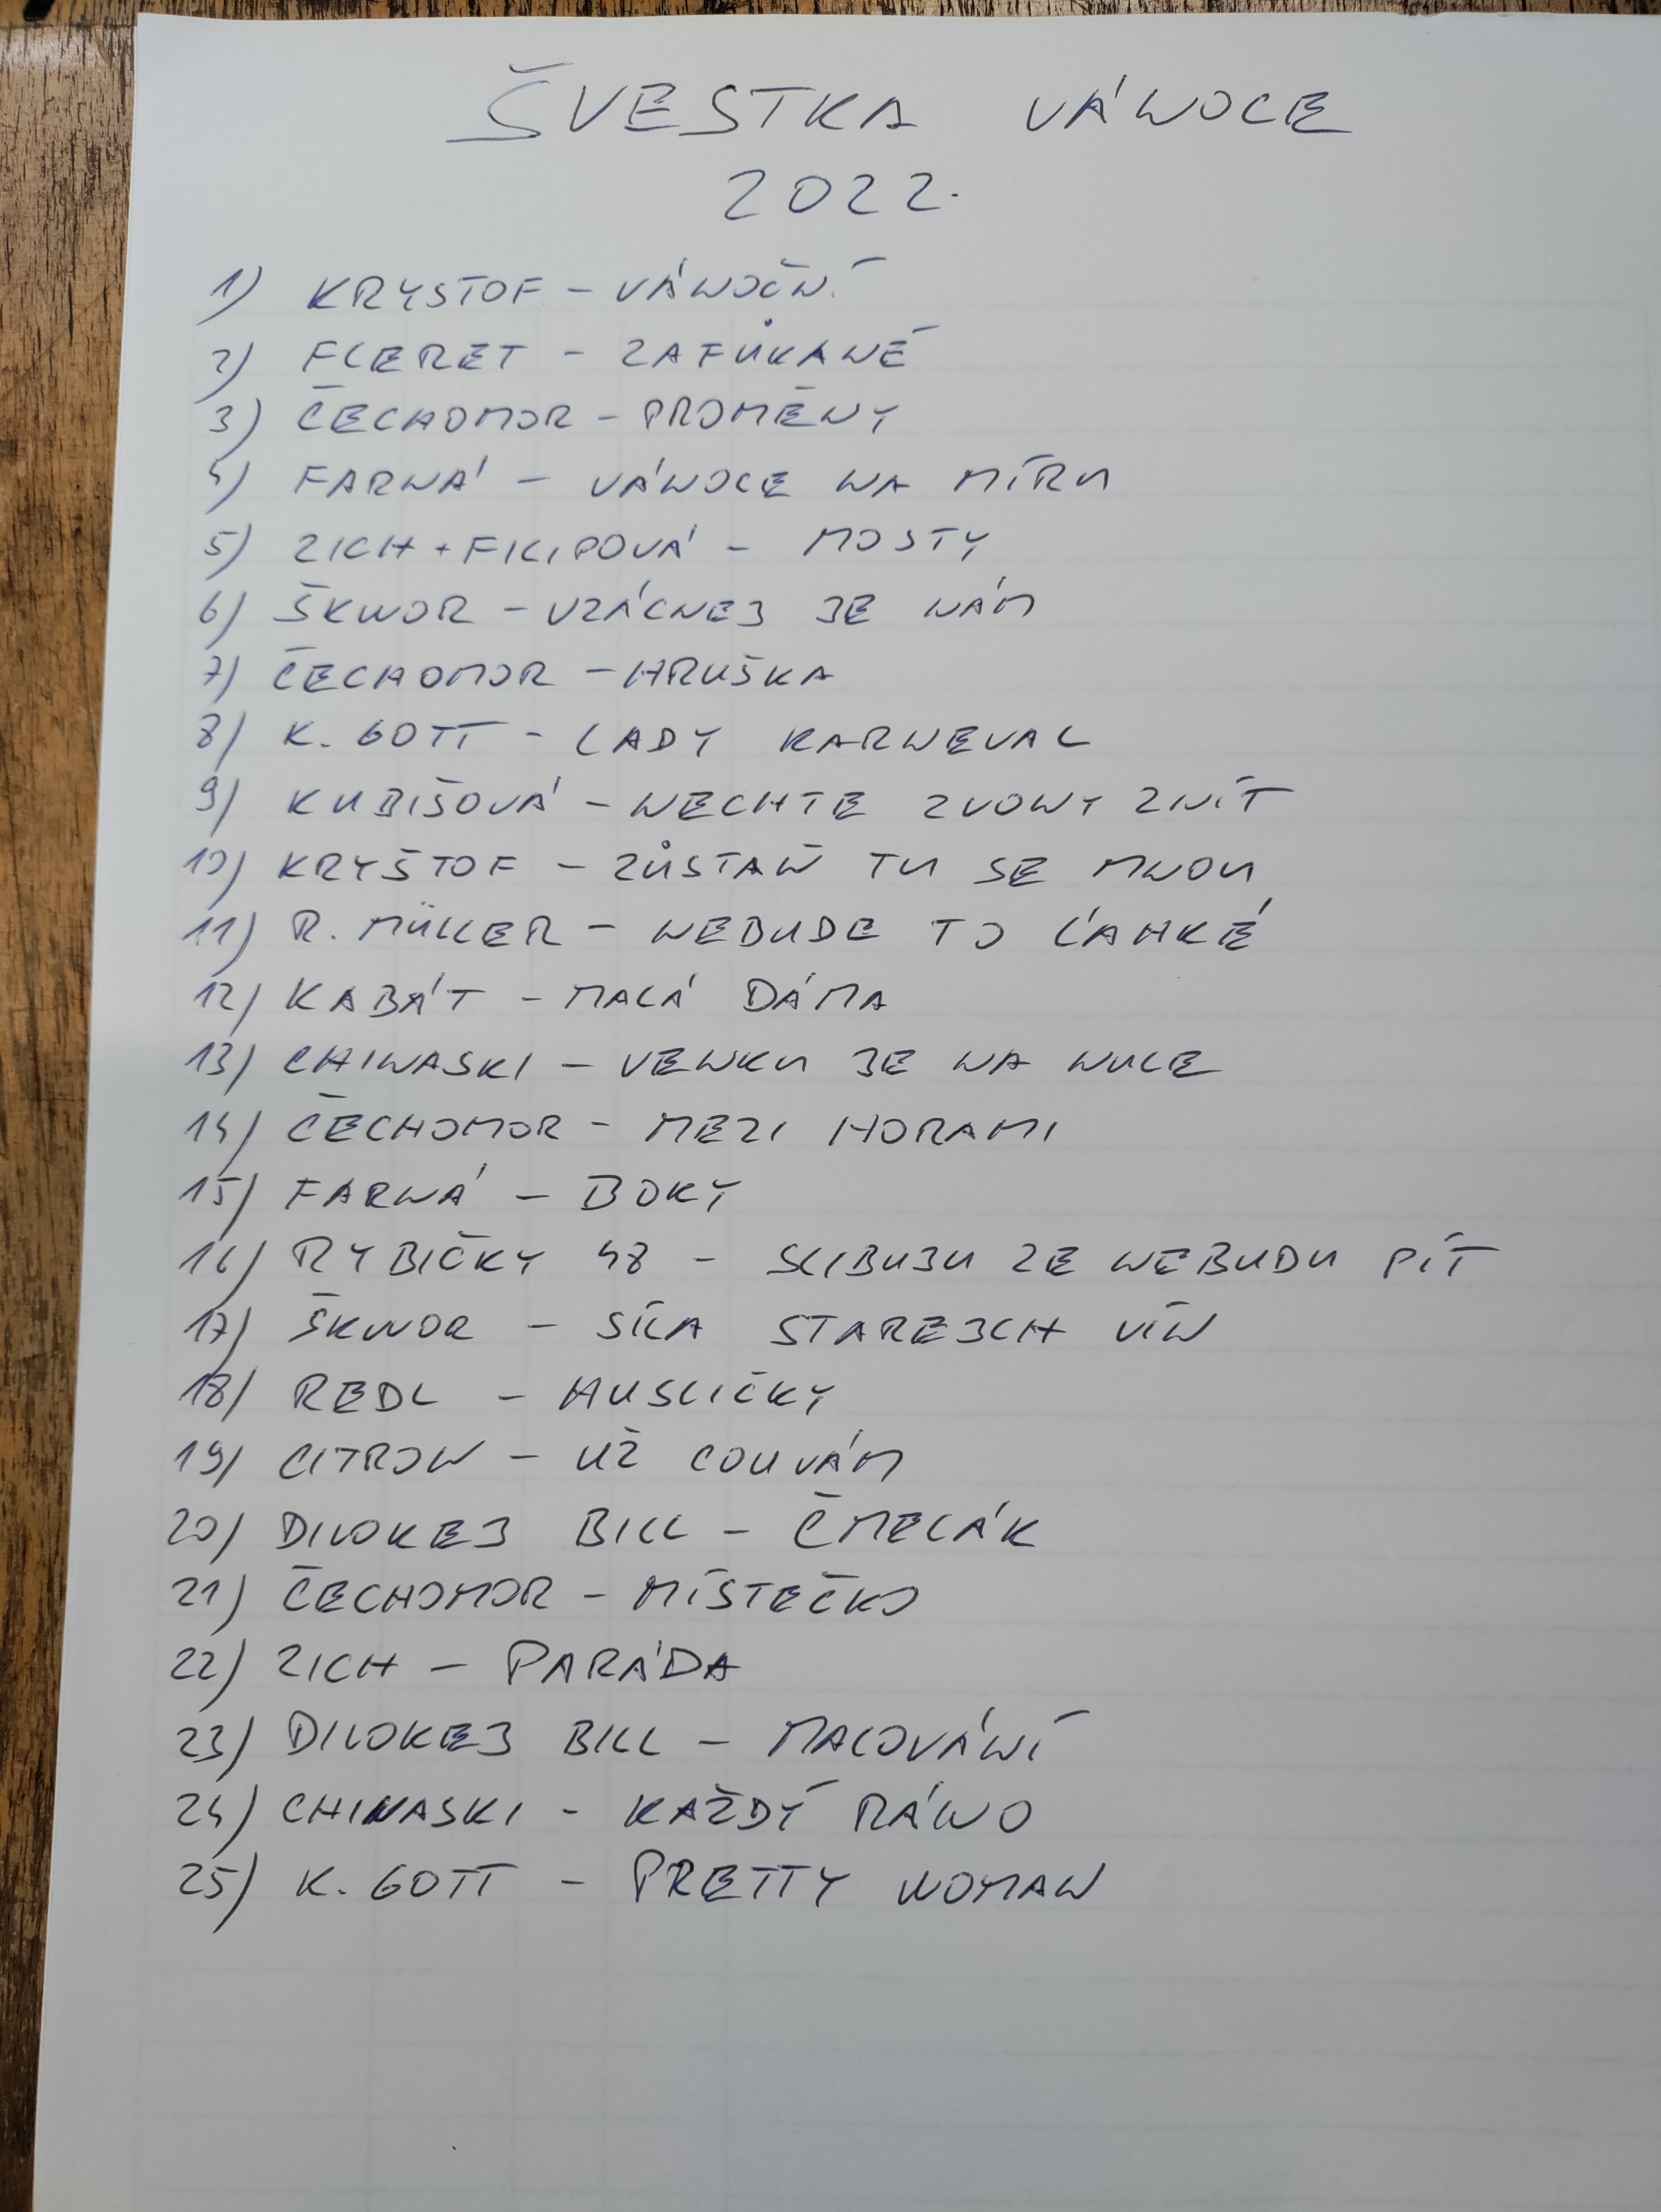 ŠVESTKA VÁNOCE
2022.
1) KRYSTOF - VÁNOČNÍ
2) FLERET - ZAFŮKANÉ
3) ČECHOMOR - PROMĚNY
4) FARNÁ - VÁNOCE NA MÍRU
5) ZICH + FILIPOVÁ - MOSTY
6) ŠKWOR - VZÁCNEJ JE NÁM
7) ČECHOMOR - HRUŠKA
8) K. GOTT - LADY KARNEVAL
9) KUBIŠOVÁ - NECHTE ZVONY ZNÍT
10) KRYŠTOF - ZŮSTAŇ TU SE MNOU
11) R. MÜLLER - NEBUDE TO ĽAHKÉ
12) KABÁT - MALÁ DÁMA
13) CHINASKI - VENKU JE NA NULE
14) ČECHOMOR - MEZI HORAMI
15) FARNÁ - BOKY
16) RYBIČKY 48 - SLIBUJU ZE NEBUDU PÍT
17) ŠKWOR - SÍLA STAREJCH VÍN
18) REDL - HUSLIČKY
19) CITRON - UŽ COUVÁM
20) DIVOKEJ BILL - ČMELÁK
21) ČECHOMOR - MÍSTEČKO
22) ZICH - PARÁDA
23) DIVOKEJ BILL - MALOVÁNÍ
24) CHINASKI - KAŽDÝ RÁNO
25) K. GOTT - PRETTY WOMAN